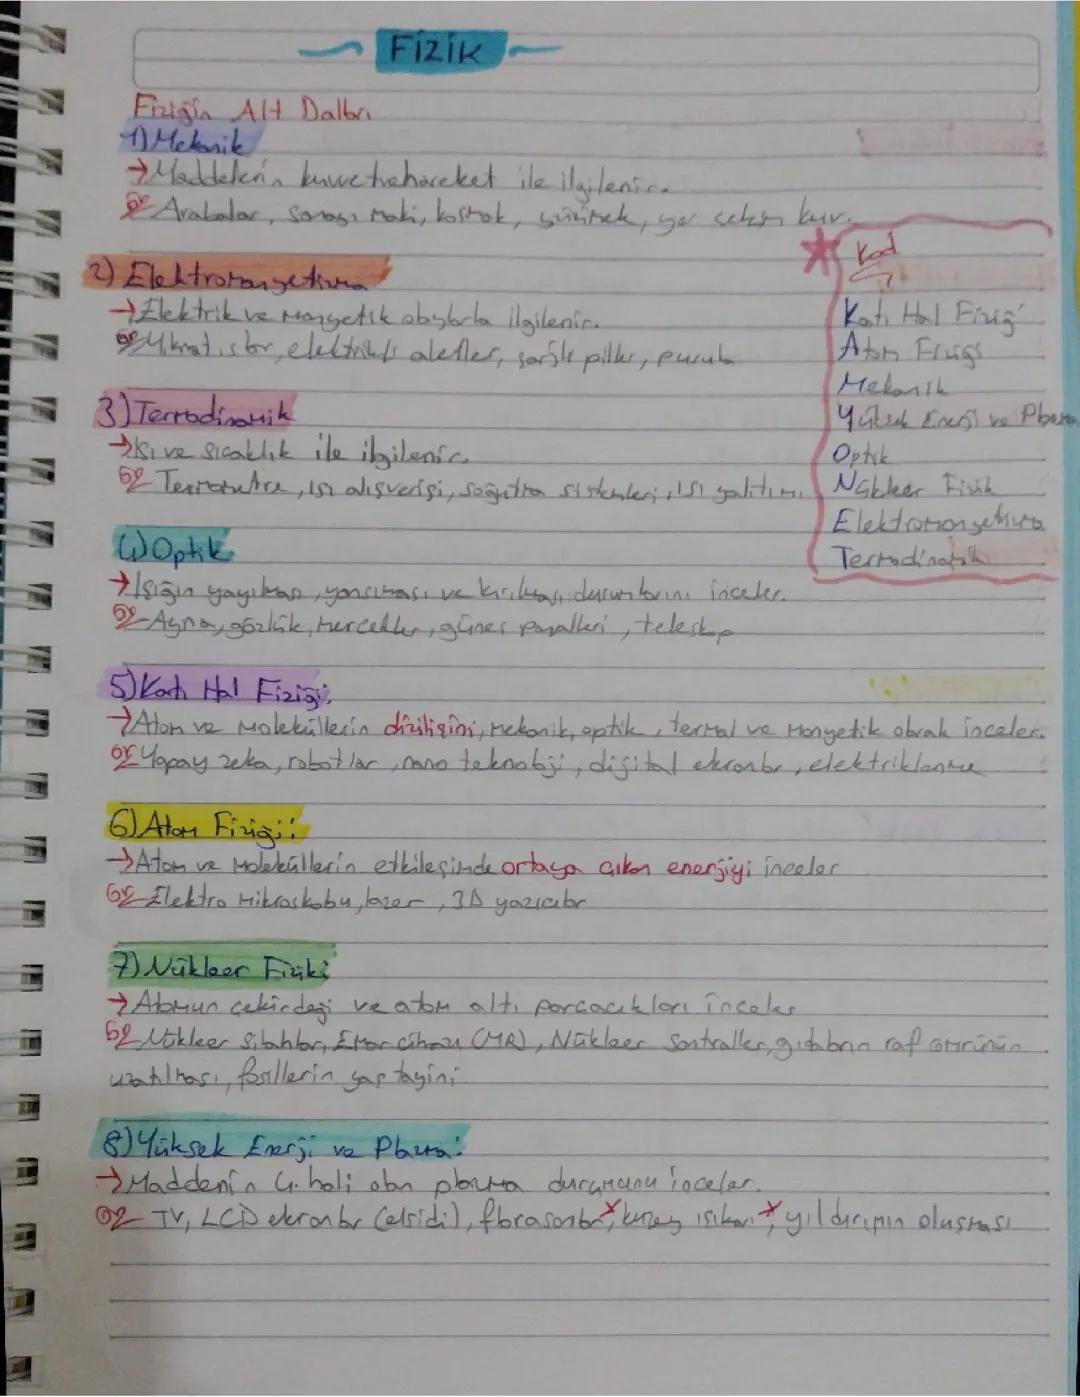 Fizik
Fiziğin Alt Dalları
1) Mekanik
→ Maddelerin kuvvet ve hareket ile ilgilenir.
Ör Arabalar, makı, koşmak, yürümek, yer çekim kuv.
2) Elektromangetizma
→ Elektrik ve mangetik olaylarla ilgilenir.
Ör Mıknatıslar, elektrikli aletler, şarjlı piller, pusula
3) Termodinamik
→ Isı ve sıcaklık ile ilgilenir.
Ör Termometre, ısı alışverişi, soğutma sistemleri, ısı yalıtımı
4) Optik
→ Işığın yayılması, yansıması ve kırılması durumlarını inceler.
Ör Ayna, gözlük, mercekler, güneş panelleri, teleskop
5) Katı Hal Fiziği:
→ Atom ve moleküllerin dizilişini, mekanik, optik, termal ve mangetik olarak inceler.
Ör Yapay zeka, robotlar, nano teknoloji, dijital ekranlar, elektriklenme
6) Atom Fiziği:
→ Atom ve moleküllerin etkileşimde ortaya çıkan enerjiyi inceler
Ör Elektro mikroskobu, lazer, 3D yazıcılar
7) Nükleer Fiziki
→ Atomun çekirdeği ve atom altı parçacıkları inceler
Ör Nükleer silahlar, Emar cihazı (MR), Nükleer Santraller, gıdaların raf ömrünün
uzatılması, fosillerin yaş tayini
8) Yüksek Enerji ve Plazma:
→ Maddenin 4. hali olan plazma durumunu inceler.
Ör TV, LCD ekranlar (elsidi), florasanlar, kuzey ışıkları, yıldırımın oluşması
Kod
Katı Hal Fiziği
Atom Fiziği
Mekanik
Yüksek Enerji ve Plazma
Optik
Nükleer Fizik
Elektromangetizma
Termodinamik